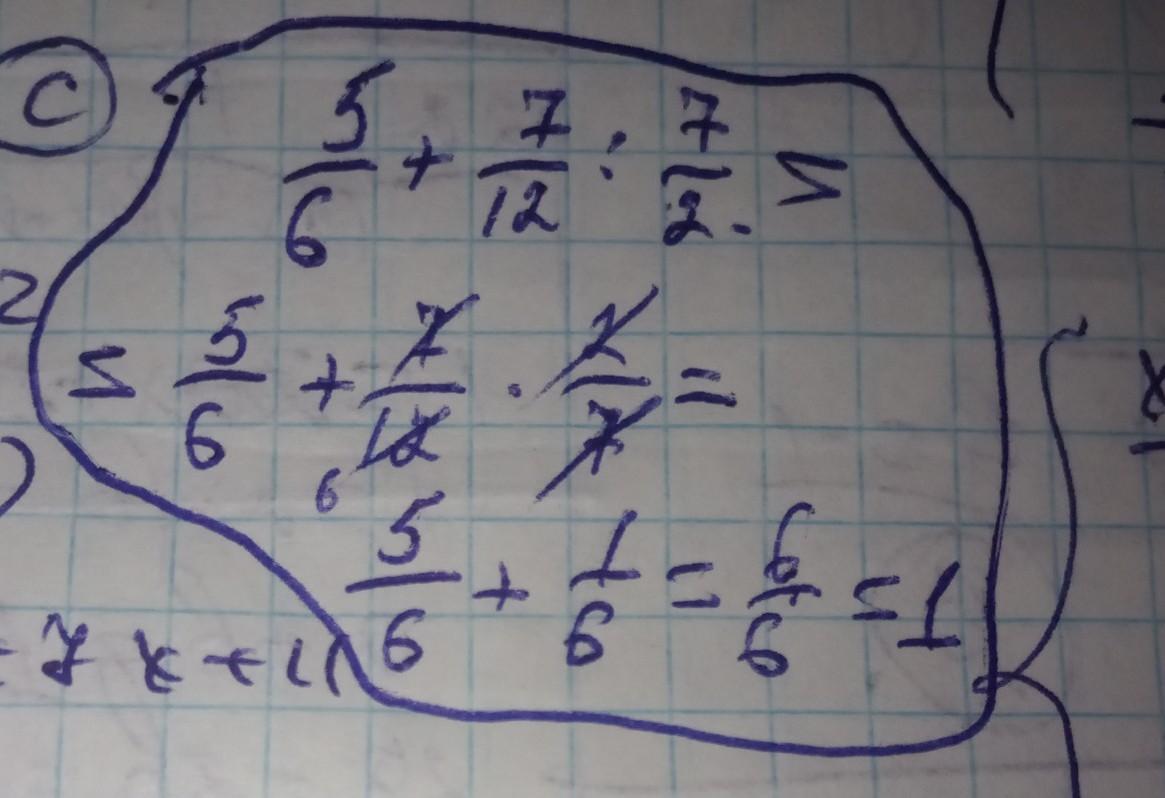 C
5/6 + 7/12 : 7/2 =
= 5/6 + 7/12 · 2/7 =
6
5/6 + 1/6 = 6/6 = 1
7x + 11